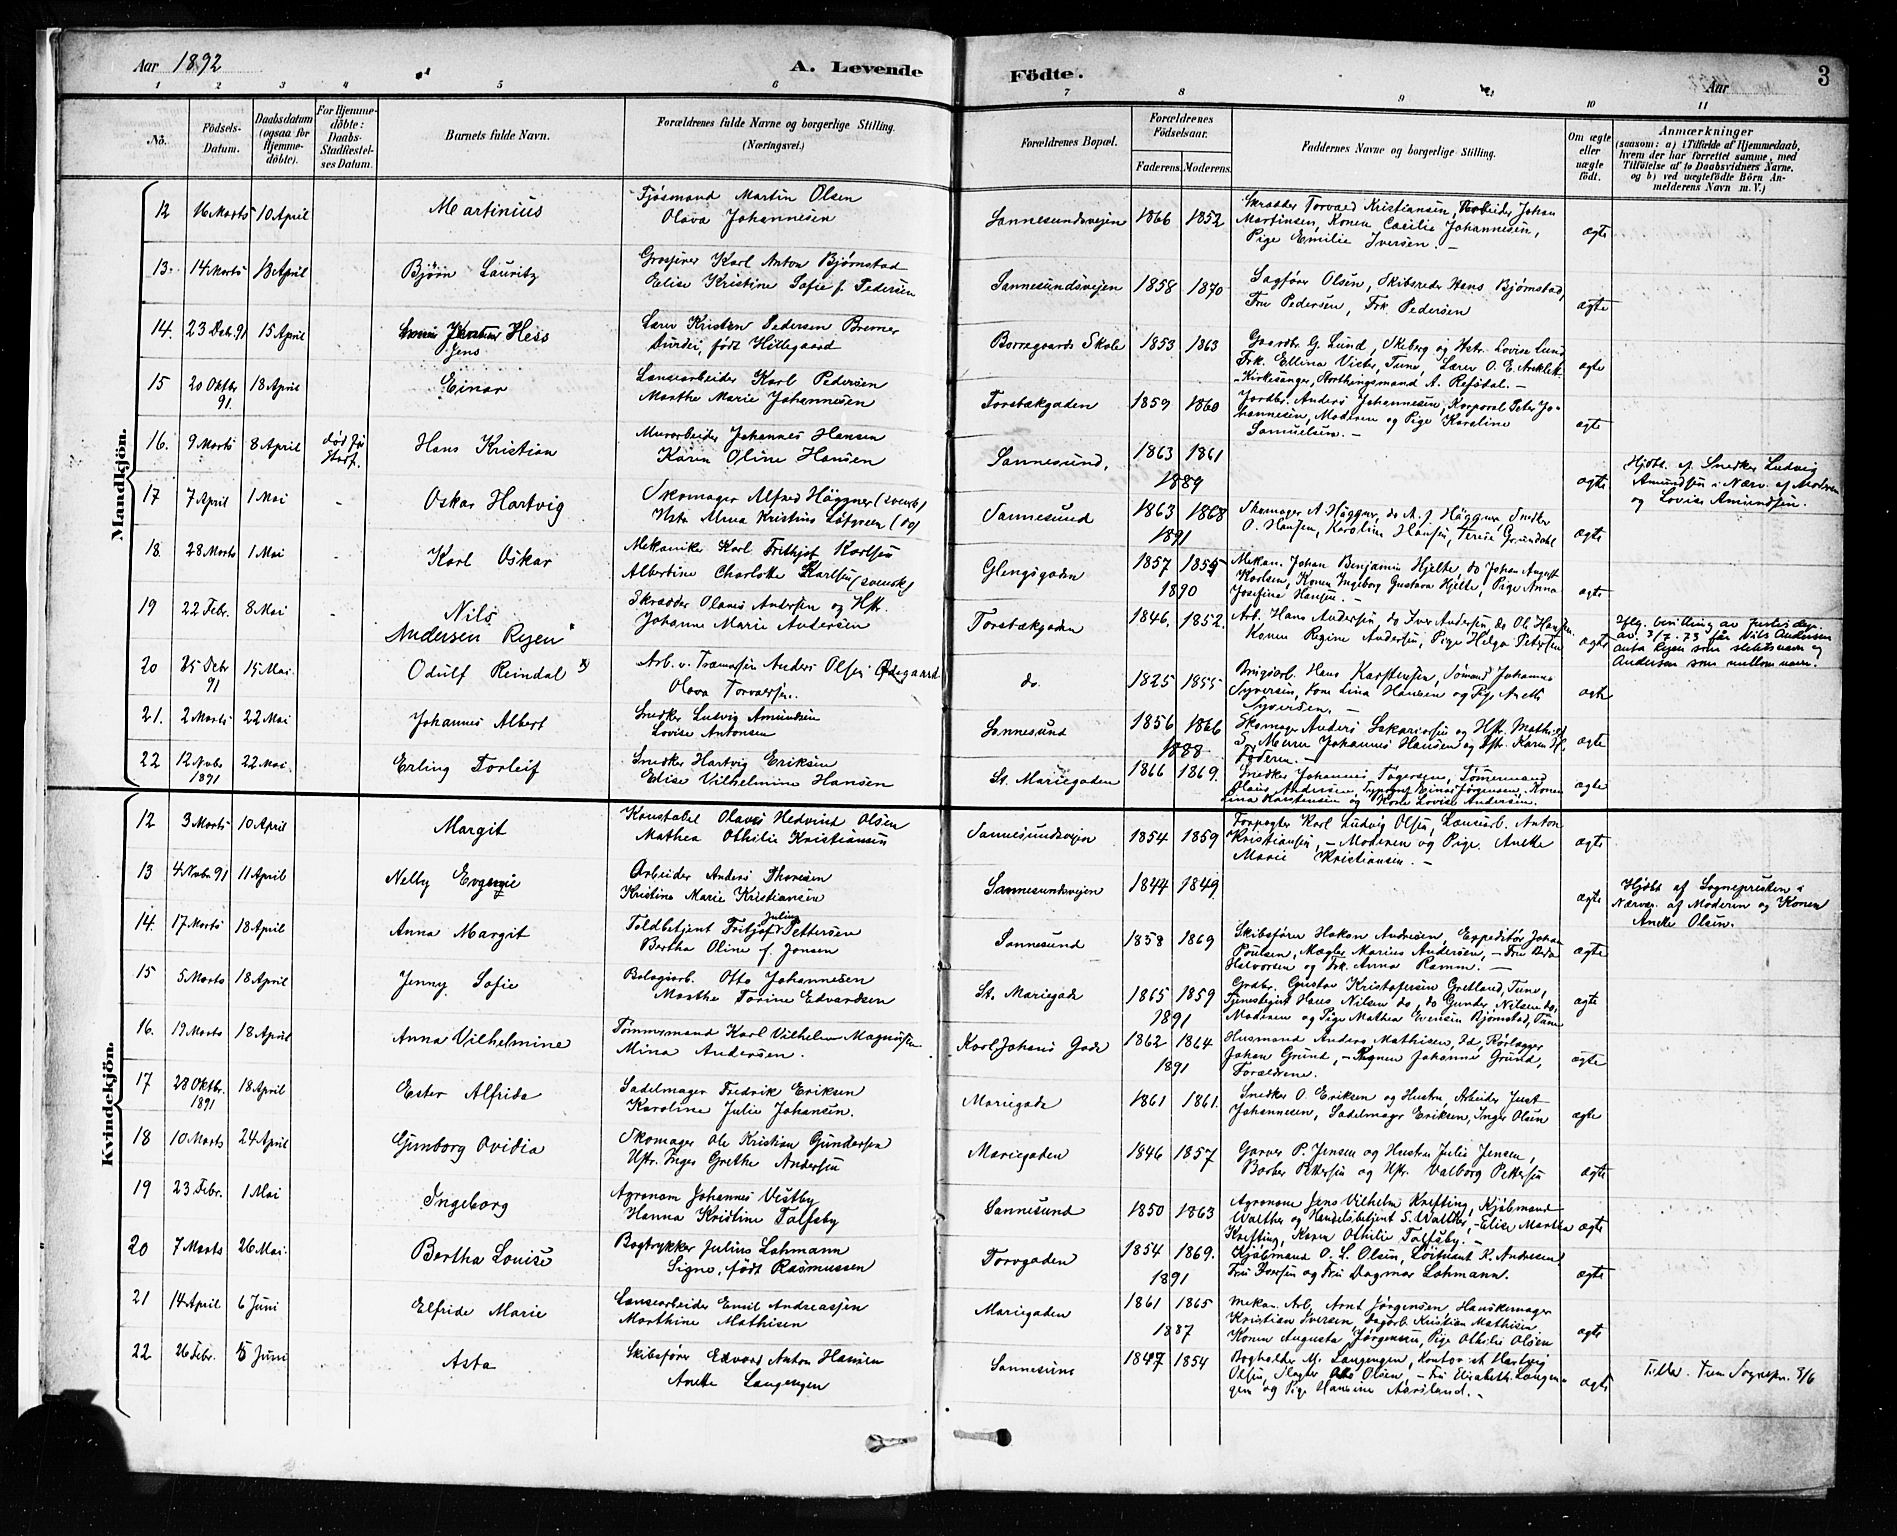 Aar 1892 A. Levende Födte. Aar 3
1 2 3 4 5 6 7 8 9 10 11
No.
Födsels-Datum.
Daabsdatum (ogsaa for Hjemmedöbte).
For Hjemmedöbte: Daabs-Stadfæstelses Datum.
Barnets fulde Navn.
Forældrenes fulde Navne og borgerlige Stilling. (Næringsvei.)
Forældrenes Bopæl.
Forældrenes Födselsaar.
Faderens. Moderens.
Faddernes Navne og borgerlige Stilling.
Om ægte eller uægte födt.
Anmærkninger
(saasom: a) i Tilfælde af Hjemmedaab, hvem der har forrettet samme, med Tilföielse af to Daabsvidners Navne, og b) ved uægtefödte Börn Anmelderens Navn m. V.)
Mandkjön.
12 16 Marts 10 April Martinius
Fjøsmand Martin Olsen
Olava Johannesen
Sannesundsveien 1866 1852
Skrædder Torvald Kristiansen, Arbeider Johan
Martinsen, Konen Cæcilie Johannesen,
Pige Emilie Iversen. –
ægte
13. 14 Marts 18 April Bjørn Lauritz
Grosserer Karl Anton Bjørnstad
Elise Kristine Sofie f. Pedersen
Sannesundsvejen 1858 1870
Sagfører Olsen, Skibsreder Hans Bjørnstad,
Fru Pedersen, Frk. Pedersen
ægte
14. 23 Deb. 91 15 April Hess
Jens
Lærer Kristen Pedersen Bremer
født Hillegaard
Borregaards Skole 1853 1863
Gaardbr. G. Lund, Skeberg og Hstr. Lovise Lund
Frk. Ellina Vister, Tune, Lærer O. E.
Kirkesanger, Storthingsmand A. Refsdal. –
ægte
15 20 Oktbr 91. 18 April Einar
Lænsearbeider Karl Pedersen
Marthe Marie Johannesen
Torsbækgaden 1859 1860
Jordbr. Anders Johannesen, Korporal Peter Jo-
hannesen, Moderen og Pige Karoline
Samuelsen. –
ægte
16. 9 Marts 8 April død før Stadf.
Hans Kristian
Murarbeider Johannes Hansen
Karen Oline Hansen
Sannesund, 1863 1861
1889
ægte
Hjdbt. af Snedker Ludvig
Amundsen i Nærv. af Moderen
og Lovise Amundsen.
17 7 April 1 Mai – Oskar Hartvig
Skomager Alfred Häggner (svensk)
Hstr. Alma Kristine Löfgreen (do)
Sannesund 1863 1868
1891
Skomager A. Häggner, do A. J. Häggner, Snedker
O. Hansen, Karoline Hansen, Terese Grundahl
ægte
18. 28 Marts 1 Mai – Karl Oskar
Mekaniker Karl Frithjof Karlsen
Albertine Charlotte Karlsen (svensk)
Glengsgaden 1857 1855
1890
Mekan. Johan Benjamin Hjelte, do Johan August
Karlsen, Konen Ingeborg Gustava Hjelte, Pige Anna
Josefine Hansen. –
ægte
19 22 Febr. 8 Mai – Nils
Andersen Ryen
Skrædder Olaves Andersen og Hst.
Johanne Marie Andersen
Torsbækgaden 1846. 1852.
Arb. Hans Andersen, do Iver Andersen, do Ol. Hansen
Konen Regine Andersen, Pige Helga Petersen
ægte
Iflg. bevilling av Justisdep.
av. 3/7. 73 får Nils Andersen
anta Ryen som slektsnavn og
Andersen som mellomnavn.
20 25 Debr 91 15 Mai. Odulf Reindal x)
Arb. v. Anders Olsen Ødegaard
Olava Torvaldsen.
do. 1825 1855
Brugsarb. Hans Karstensen, Tømmermd Johannes
Syversen, Kone Lina Hansen og Pige Anette
Syversen. –
ægte
21. 2 Marts 22 Mai Johannes Albert
Snedker Ludvig Amundsen
Lovise Antonsen
Sannesund 1856 1866
1888
Skomager Anders Sakariassen og Hst. Mathilde
S., Murer Johannes Hansen og Hst. Karen H.
Faderen. –
ægte
22 12 Nvbr 1891 22 Mai. Erling Torleif
Snedker Hartvig Eriksen
Elise Vilhelmine Hansen
St. Mariegaden 1866 1869.
Snedker Johannes Tøgersen, Tømmermand
Olaus Andersen, Einar Jørgensen, Konen
Lina Karstensen og Kone Lovise Andersen.
ægte
Kvindekjön.
12 3 Marts 10 April Margit
Konstabel Olaves Hedvind Olsen
Mathea Othilie Kristiansen
Sannesundsveien 1854 1859
Forpagter Karl Ludvig Olsen, Lænsearb. Anton
Kristiansen, – Moderen og Pige Anette
Marie Kristiansen. –
ægte
13 4 Nvbr. 91 11 April Nelly Evgenie
Arbeider Anders Thoresen
Kristine Marie Kristiansen
Sannesundsveien 1844 1849.
ægte
Hjdbt af Sognepresten i
Nærvær. af Moderen og Konen
Anette Olsen.
14. 17 Marts 18 April Anna Margit
Toldbetjent Fritjof Julius Pettersen
Bertha Oline f. Jonsen
Sannesund 1858 1869
Skibsfører Hakon Andresen, Expeditør Johan
Poulsen, Mægler Marius Andersen, – Fru
Halvorsen og Frk. Anna Ramm. –
ægte
15 5 Marts 18 April Jenny Sofie
Bologiarb. Otto Johannesen
Marthe Torine Edvardsen
St. Mariegade 1865 1859
1891
Grdbr. Gustav Kristofersen Grelland, Tune,
Tjenestegut Hans Nilsen do, do Gunder Nilsen do,
Moderen og Pige Mathea Evensen Bjørnstad, Tune
ægte
16. 19 Marts 18 April Anna Vilhelmine
Tømmermand Karl Vilhelm Magnussen
Mina Andersen.
Karl Johans Gade 1862 1864
1891
Husmand Anders Mathisen, Id, Rørlægger
Johan Grund, – Pigen Johanne Grund,
Forældrene.
ægte
17 28 Oktbr. 1891 18 April Ester Alfrida
Sadelmager Fredrik Eriksen
Karoline Julie Johansen.
Mariegade 1861 1861.
Snedker O. Eriksen og Hustru, Arbeider Just
Johannesen, Sadelmager Eriksen, Inger Olsen
ægte
18 10 Marts 24 April Gunborg Ovidia
Skomager Ole Kristian Gundersen
Hstr. Inger Grethe Andersen
Mariegaden 1846 1857
Garver P. Jensen og Hustru Julie Jensen,
Barber Pettersen og Hstr. Valborg Pettersen
ægte
19 23 Febr. 1 Mai Ingeborg
Agronom Johannes Vestby
Hanna Kristine Tolfsby
Sannesund 1850 1863
Agronom Jens Vilhelm Krefting, Kjøbmand
Walther og Handelsbetjent S. Walther, – Elise Marthea
Krefting, Karen Othilie Tolfsby. –
ægte
20 7 Marts 26 Mai. Bertha Louise
Bogtrykker Julius Lohmann
Signe, født Rasmussen
Torvgaden 1854 1869.
1891
Kjøbmand O. L. Olsen, Løitnant K. Andresen
Fru og Fru Dagmar Lohmann.
ægte
21 14 April 6 Juni Elfride Marie
Lænsearbeider Emil Andreassen
Marthine Mathisen
Mariegaden 1861 1865
1887
Mekan. Arb. Arnt Jørgensen, Hanskemager
Kristian Iversen, Kristian Mathisen,
Konen Augusta Jørgensen, Pige Othilie Olsen
ægte
22 26 Febr. 5 Juni Asta
Skibsfører Edvard Anton Hansen
Anette Langengen
Sannesund 1847 1854
Bogholder M. Langengen, Kontorist Hartvig
Olsen, Slagter Olsen, – Fru Elisabeth Langen-
gen og Pige Hansine Aarsland. –
ægte
Fru Sognepr. 8/6